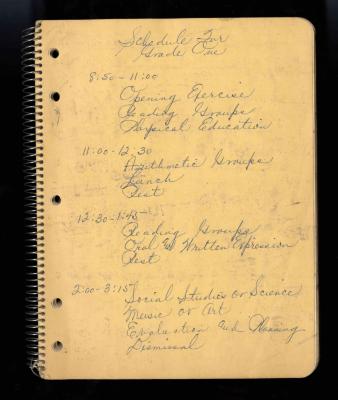 Schedule For
Grade One
8:50-11:00
Opening Exercise
Reading Groups
Physical Education
11:00-12:30
Arithmetic Groups
Lunch
Rest
12:30-1:45
Reading Groups
Oral and Written Expression
Rest
2:00-3:15
Social Studies or Science
Music or Art
Evaluation and Planning
Dismissal